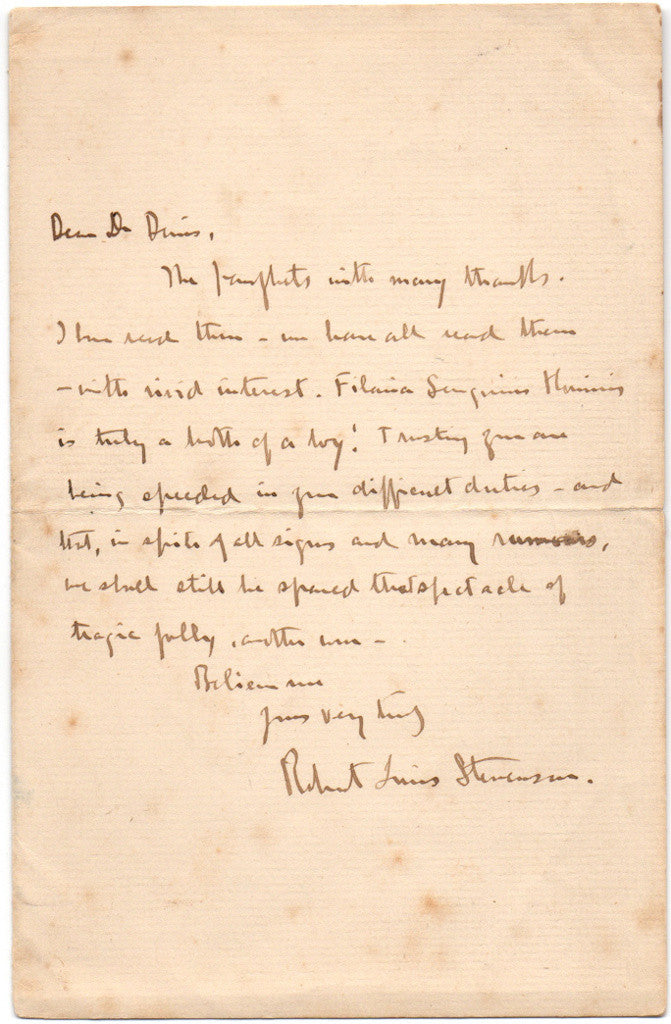 Dear Dr Davis,
The pamphlets with many thanks.
I have read them - we have all read them
- with vivid interest. Filaria Sanguinis Hominis
is truly a broth of a boy! Trusting you are
being speeded in your difficult duties - and
that, in spite of all signs and many rumours,
we shall still be spared the spectacle of
tragic folly, another war -
Believe me
yours very truly
Robert Louis Stevenson.